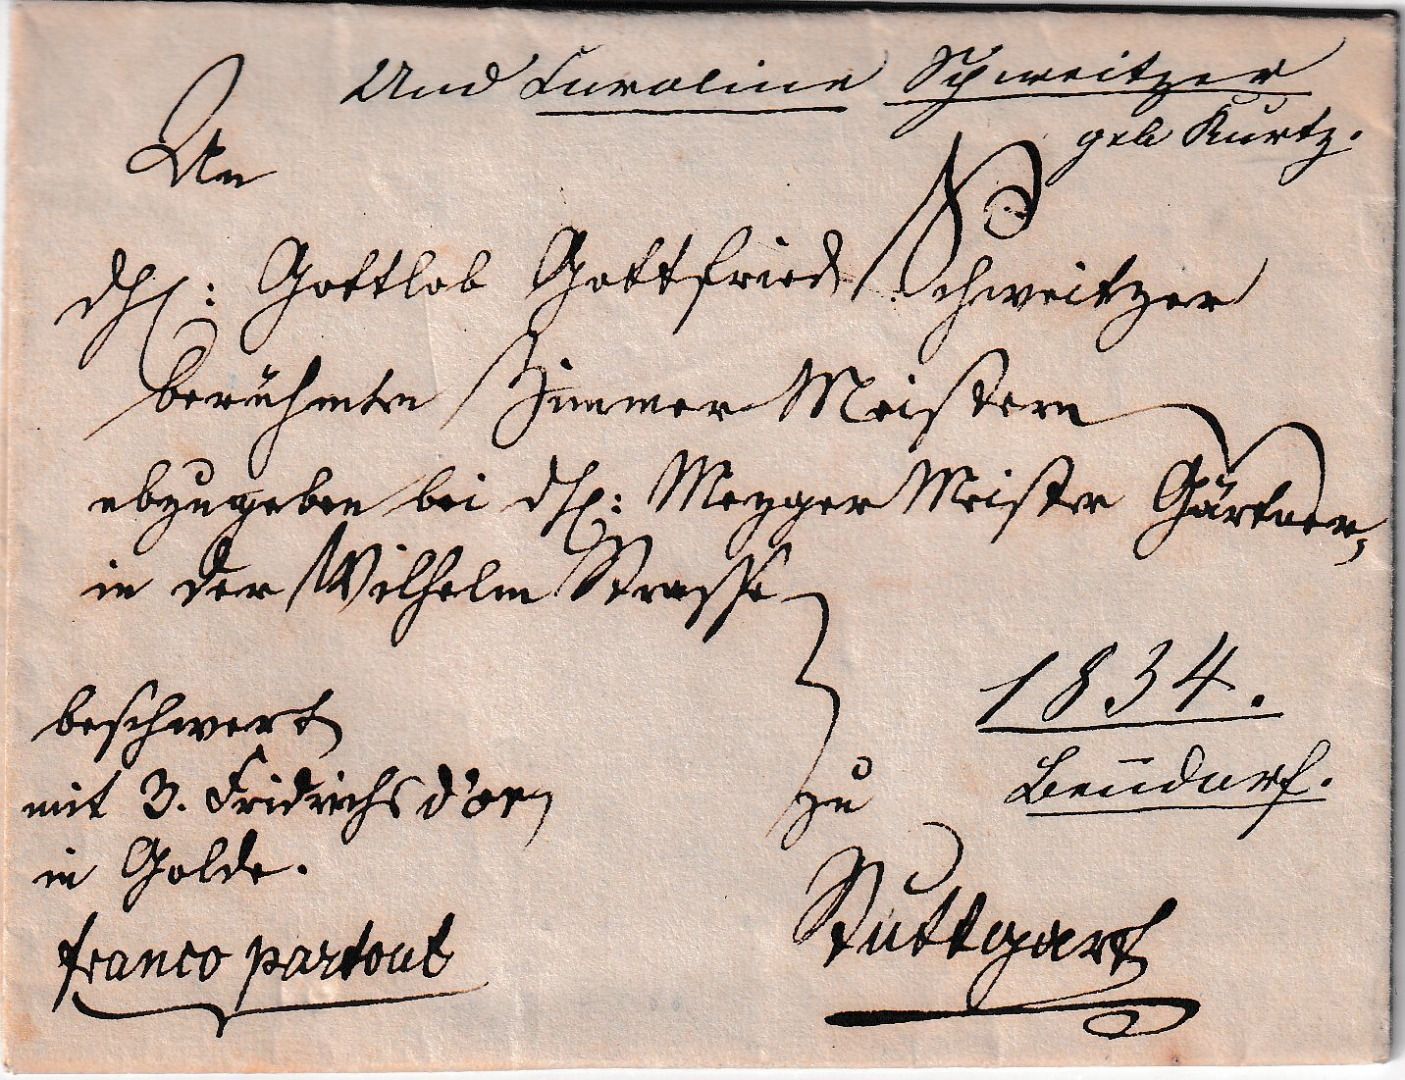 Und Caroline Schweitzer
geb Kurtz.
An
Gottlob Gottfried Schweitzer
berühmten Zimmer Meistern
abzugeben bei Mezger Meister Gärtner,
in der Wilhelm Strasse
beschwert
mit 3. Fridrichs d'or
in Golde.
franco partout
1834.
Bendorf.
zu
Stuttgart